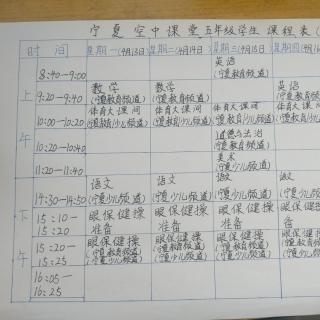 宁夏空中课堂五年级学生课程表
时间 星期一(4月13日) 星期二(4月14日) 星期三(4月15日) 星期四(4月16
上午
8:40-9:00 英语(宁夏教育频道)
9:20-9:40 数学(宁夏教育频道) 数学(宁夏教育频道) 英语(宁夏教育频道
10:00-10:20 体育大课间(宁夏教育少儿频道) 体育大课间(宁夏教育少儿频道) 体育大课间(宁夏教育少儿频道) 体育大课间(宁夏教育少儿频
10:20-10:40 道德与法治(宁夏教育频道)
11:20-11:40 美术(宁夏少儿频道)
下午
14:30-14:50 语文(宁夏少儿频道) 语文(宁夏少儿频道) 语文(宁夏少儿频道) 语文(宁夏少儿频道
15:10-15:20 眼保健操准备 眼保健操准备 眼保健操准备 眼保健备
15:20-15:25 眼保健操(宁夏教育频道)(宁夏少儿频道) 眼保健操(宁夏教育频道)(宁夏少儿频道) 眼保健操(宁夏教育频道)(宁夏少儿频道) 眼保健(宁夏教育频道(宁夏少儿频道
16:05-16:25